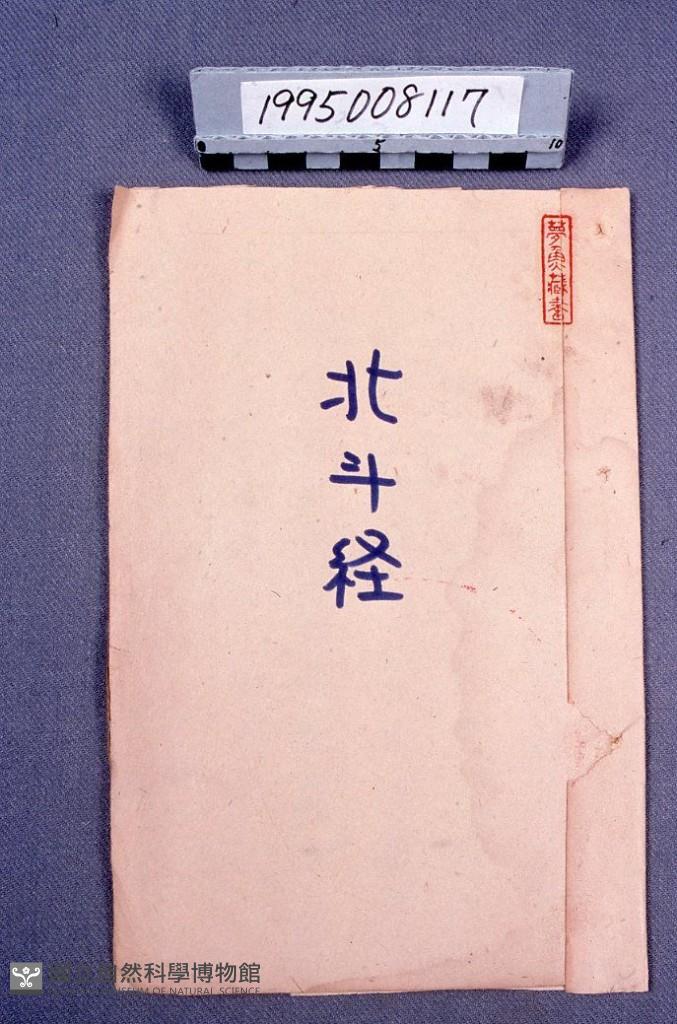 1995008117
5
10
夢魚藏書
北斗経
國立自然科學博物館
MUSEUM OF NATURAL SCIENCE